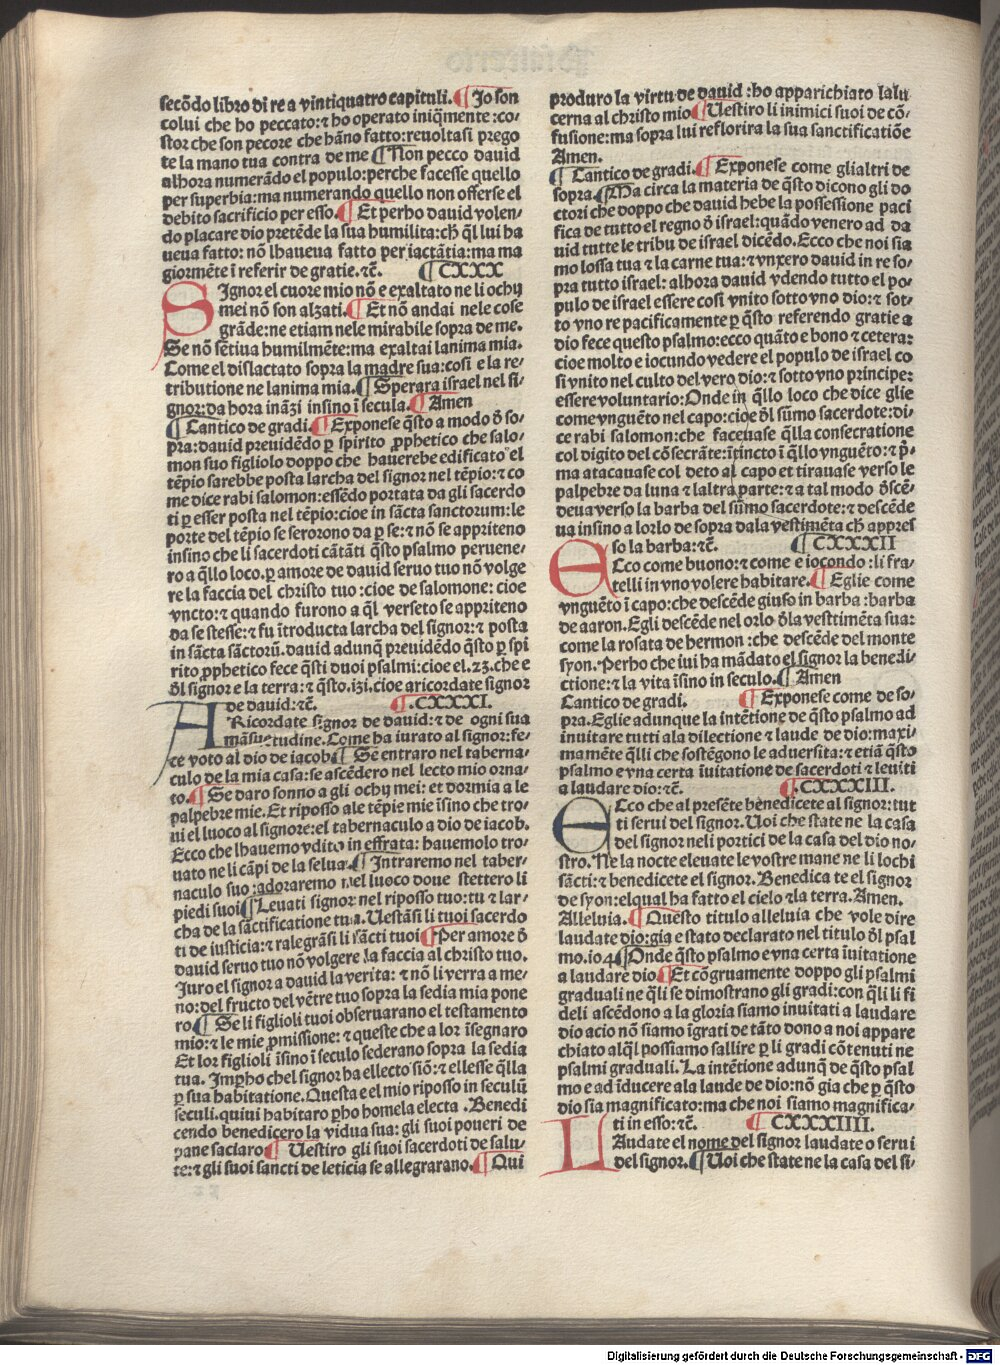 secōdo libro di re a vintiquatro capituli. ¶ Jo son
colui che ho peccato: ⁊ ho operato iniq̄mente: co-
stor che son pecore che hāno fatto: reuoltasi prego
te la mano tua contra de me ¶ Non pecco dauid
alhora numerādo el populo: perche facesse quello
per superbia: ma numerando quello non offerse el
debito sacrificio per esso. ¶ Et perho dauid volen-
do placare dio pretēde la sua humilita: ch̄ q̄l lui ha
ueua fatto: nō lhaueua fatto per iactātia: ma ma
giormēte ī referir de gratie. ⁊c̄. ¶ CXXX
SIgnor el cuore mio nō e exaltato ne li ochij
mei nō son alzati. ¶ Et nō andai nele cose
grāde: ne etiam nele mirabile sopra de me.
Se nō sētiua humilmēte: ma exaltai lanima mia.
Come el dislactato sopra la madre sua: cosi e la re-
tributione ne lanima mia. ¶ Sperara israel nel si-
gnor: da hora ināzi insino ī secula. ¶ Amen
¶ Cantico de gradi. ¶ Exponese q̄sto a modo d̄ so-
pra: dauid preuidēdo ꝑ spirito ꝓphetico che salo-
mon suo figliolo doppo che hauerebe edificato el
tēpio sarebbe posta larcha del signor nel tēpio: ⁊ co
me dice rabi salomon: essēdo portata da gli sacerdo
ti ꝑ esser posta nel tēpio: cioe in sācta sanctorum: le
porte del tēpio se serorono da ꝑ se: ⁊ nō se appriteno
insino che li sacerdoti cātāti q̄sto psalmo peruene-
ro a q̄llo loco. ꝑ amore de dauid seruo tuo nō volge
re la faccia del christo tuo: cioe de salomone: cioe
vncto: ⁊ quando furono a q̄l verseto se appriteno
da se stesse: ⁊ fu ītroducta larcha del signor: ⁊ posta
in sācta sāctorū. dauid adunq̄ preuidēdo q̄sto ꝑ spi
rito ꝓphetico fece q̄sti duoi psalmi: cioe el .23. che e
d̄l signor e la terra: ⁊ q̄sto .131. cioe aricordate signor
de dauid: ⁊c̄. ¶ .CXXXI.
ARicordate signor de dauid: ⁊ de ogni sua
māsuetudine. Come ha iurato al signor: fe-
ce voto al dio de iacob ¶ Se entraro nel taberna-
culo de la mia casa: se ascēdero nel lecto mio orna-
to. ¶ Se daro sonno a gli ochij mei: et dormia a le
palpebre mie. Et riposso ale tēpie mie īsino che tro-
ui el luoco al signore: el tabernaculo a dio de iacob.
Ecco che lhauemo vdito in effrata: hauemolo tro-
uato ne li cāpi de la selua. ¶ Intraremo nel taber-
naculo suo: adoraremo nel luoco doue stettero li
piedi suoi ¶ Leuati signor nel riposso tuo: tu ⁊ lar-
cha de la sāctificatione tua. Uestāsi li tuoi sacerdo
ti de iusticia: ⁊ ralegrāsi li sācti tuoi ¶ Per amore d̄
dauid seruo tuo nō volgere la faccia al christo tuo.
Juro el signor a dauid la verita: ⁊ nō li verra a me-
no: del fructo del vētre tuo sopra la sedia mia pone
ro ¶ Se li figlioli tuoi obseruarano el testamento
mio: ⁊ le mie ꝓmissione: ⁊ queste che a lor īsegnaro
Et lor figlioli īsino ī seculo sederano sopra la sedia
tua. Imꝑho chel signor ha ellecto siō: ⁊ ellesse q̄lla
ꝑ sua habitatione. Questa e el mio riposso in seculū
seculi. quiui habitaro ꝑho homela electa. Benedi
cendo benedicero la vidua sua: gli suoi poueri de
pane saciaro ¶ Uestiro gli suoi sacerdoti de salu-
te: ⁊ gli suoi sancti de leticia se allegrarano. ¶ Qui
produro la virtu de dauid: ho apparichiato la lu
cerna al christo mio ¶ Uestiro li inimici suoi de cō-
fusione: ma sopra lui reflorira la sua sanctificatiōe
Amen.
¶ Cantico de gradi. ¶ Exponese come gli altri de
sopra. ¶ Ma circa la materia de q̄sto dicono gli do
ctori che doppo che dauid hebe la possessione paci
fica de tutto el regno d̄ israel: quādo venero ad da
uid tutte le tribu de israel dicēdo. Ecco che noi sia
mo lossa tua ⁊ la carne tua: ⁊ vnxero dauid in re so-
pra tutto israel: alhora dauid vdendo tutto el po-
pulo de israel essere cosi vnito sotto vno dio: ⁊ sot-
to vno re pacificamente ꝑ q̄sto referendo gratie a
dio fece questo psalmo: ecco quāto e bono ⁊ cetera:
cioe molto e iocundo vedere el populo de israel co
si vnito nel culto del vero dio: ⁊ sotto vno principe:
essere voluntario: Onde in q̄llo loco che dice glie
come vnguēto nel capo: cioe d̄l sūmo sacerdote: di-
ce rabi salomon: che faceuase q̄lla consecratione
col digito del cōsecrāte: ītincto ī q̄llo vnguēto: ⁊ p̄-
ma atacauase col deto al capo et tirauase verso le
palpebre da luna ⁊ laltra parte: ⁊ a tal modo d̄scē-
deua verso la barba del sūmo sacerdote: ⁊ descēde
ua insino a lorlo de sopra dala vestimēta ch̄ appres
so la barba: ⁊c̄. ¶ CXXXII
ECco come buono: ⁊ come e iocondo: li fra-
telli in vno volere habitare. ¶ Eglie come
vnguēto ī capo: che descēde giuso in barba: barba
de aaron. Egli descēde nel orlo d̄la vesttimēta sua:
come la rosata de hermon: che descēde del monte
syon. Perho che iui ha mādato el signor la benedi-
ctione: ⁊ la vita īsino in seculo. ¶ Amen
Cantico de gradi. ¶ Exponese come de so-
pra. Eglie adunque la intētione de q̄sto psalmo ad
inuitare tutti ala dilectione ⁊ laude de dio: maxi-
mamēte q̄lli che sostēgono le aduersita: ⁊ etiā q̄sto
psalmo e vna certa īuitatione de sacerdoti ⁊ leuiti
a laudare dio: ⁊c̄. ¶ .CXXXIII.
ECco che al presēte benedicete al signor: tut
ti serui del signor. Uoi che state ne la casa
del signor neli portici de la casa del dio no-
stro. Ne la nocte eleuate le vostre mane ne li lochi
sācti: ⁊ benedicete el signor. Benedica te el signor
de syon: elqual ha fatto el cielo ⁊ la terra. Amen.
Alleluia. ¶ Questo titulo alleluia che vole dire
laudate dio: gia e stato declarato nel titulo d̄l psal
mo. 104 ¶ Onde q̄sto psalmo e vna certa īuitatione
a laudare dio ¶ Et cōgruamente doppo gli psalmi
graduali ne q̄li se dimostrano gli gradi: con q̄li li fi
deli ascēdono a la gloria siamo inuitati a laudare
dio acio nō siamo īgrati de tāto dono a noi appare
chiato alq̄l possiamo sallire ꝑ li gradi cōtenuti ne
psalmi graduali. La intētione adunq̄ de q̄sto psal
mo e ad īducere ala laude de dio: nō gia che ꝑ q̄sto
dio sia magnificato: ma che noi siamo magnifica-
ti in esso: ⁊c̄. ¶ CXXXIIII.
LAudate el nome del signor laudate o serui
del signor. ¶ Uoi che state ne la casa del si-
Digitalisierung gefördert durch die Deutsche Forschungsgemeinschaft - DFG